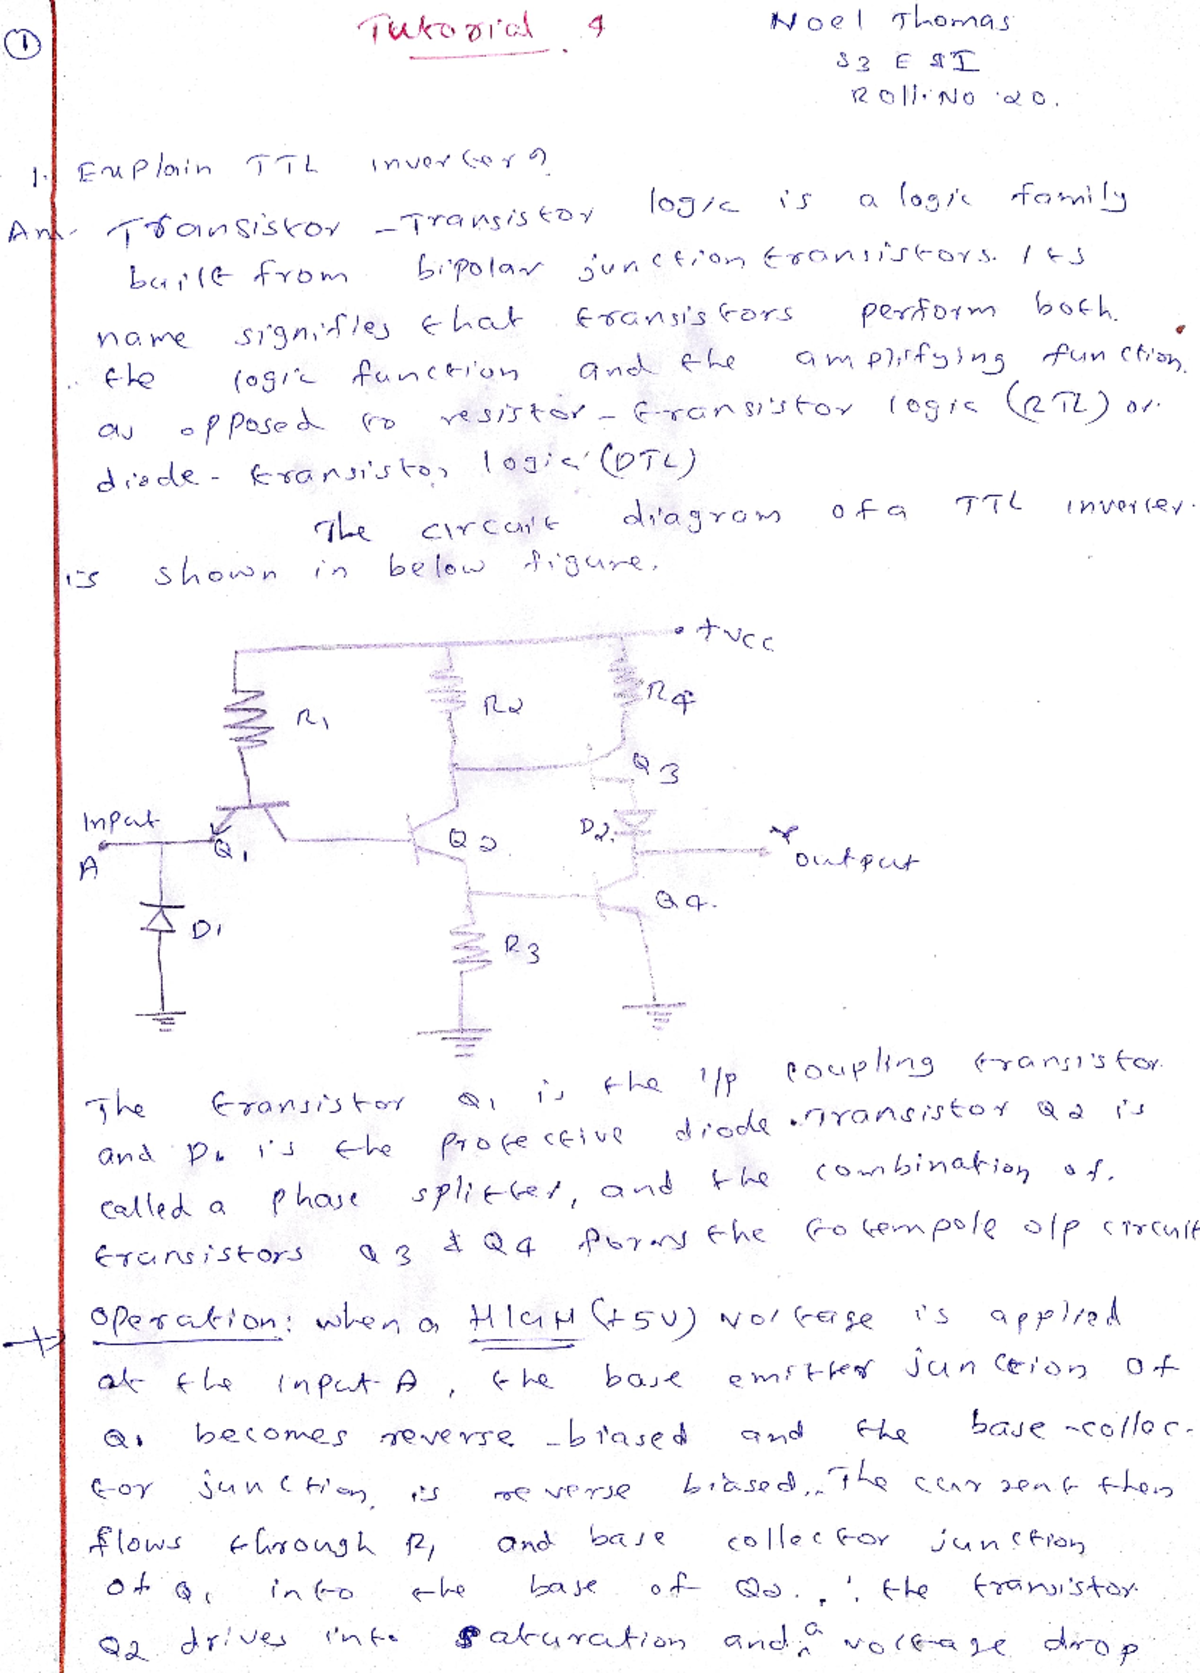 1
Tutorial 4
Noel Thomas
S3 E &I
Roll.No 20.
1. Explain TTL inverter?
Ans- Transistor - Transistor logic is a logic family
built from bipolar junction transistors. Its
name signifies that transistors perform both.
the logic function and the amplifying function.
as opposed to resistor - transistor logic (RTL) or.
diode - transistor logic (DTL)
The circuit diagram of a TTL inverter.
is shown in below figure.
+VCC
R1
R2
R4
Q3
Input
A
Q1
Q2
D2
Y
output
Q4.
D1
R3
The transistor Q1 is the i/p coupling transistor
and D1 is the protective diode. Transistor Q2 is
called a phase splitter, and the combination of.
transistors Q3 & Q4 forms the totempole o/p circuit
Operation: when a HIGH (+5V) voltage is applied
at the input A, the base emitter junction of
Q1 becomes reverse -biased and the base-collec-
tor junction is reverse biased. The current then
flows through R1 and base collector junction
of Q1 into the base of Q2. ∴ the transistor
Q2 drives into saturation and a voltage drop